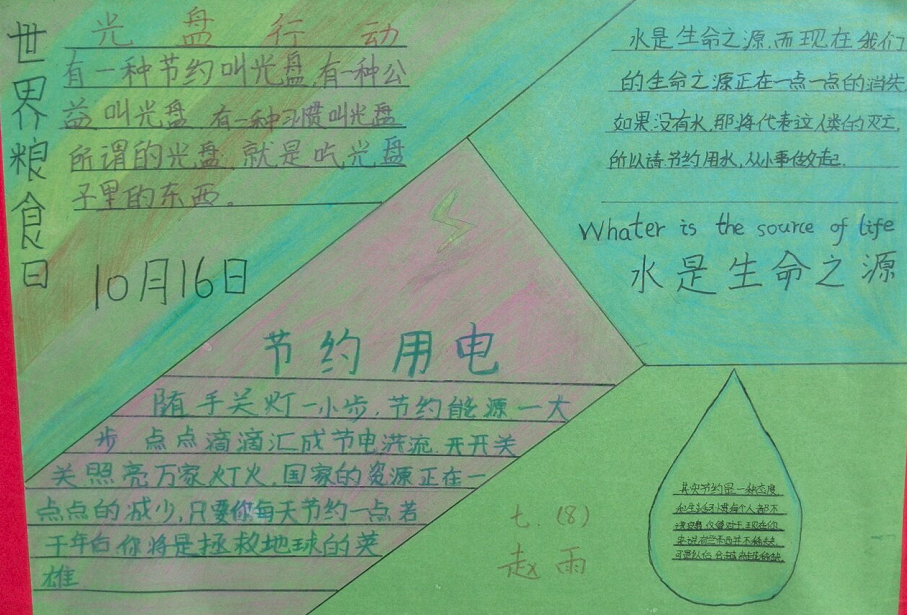 世界粮食日
光盘行动
有一种节约叫光盘,有一种公
益叫光盘 有一种习惯叫光盘
所谓的光盘,就是吃光盘
子里的东西。
10月16日
水是生命之源,而现在我们
的生命之源正在一点一点的消失
如果没有水,那将代表这人类的灭亡,
所以请节约用水,从小事做起.
Whater is the source of life
水是生命之源
节约用电
随手关灯一小步,节约能源一大
步 点点滴滴汇成节电洪流,开开关
关照亮万家灯火,国家的资源正在一
点点的减少,只要你每天节约一点 若
干年后你将是拯救地球的英
雄
其实节约是一种态度
七.(8)
赵雨